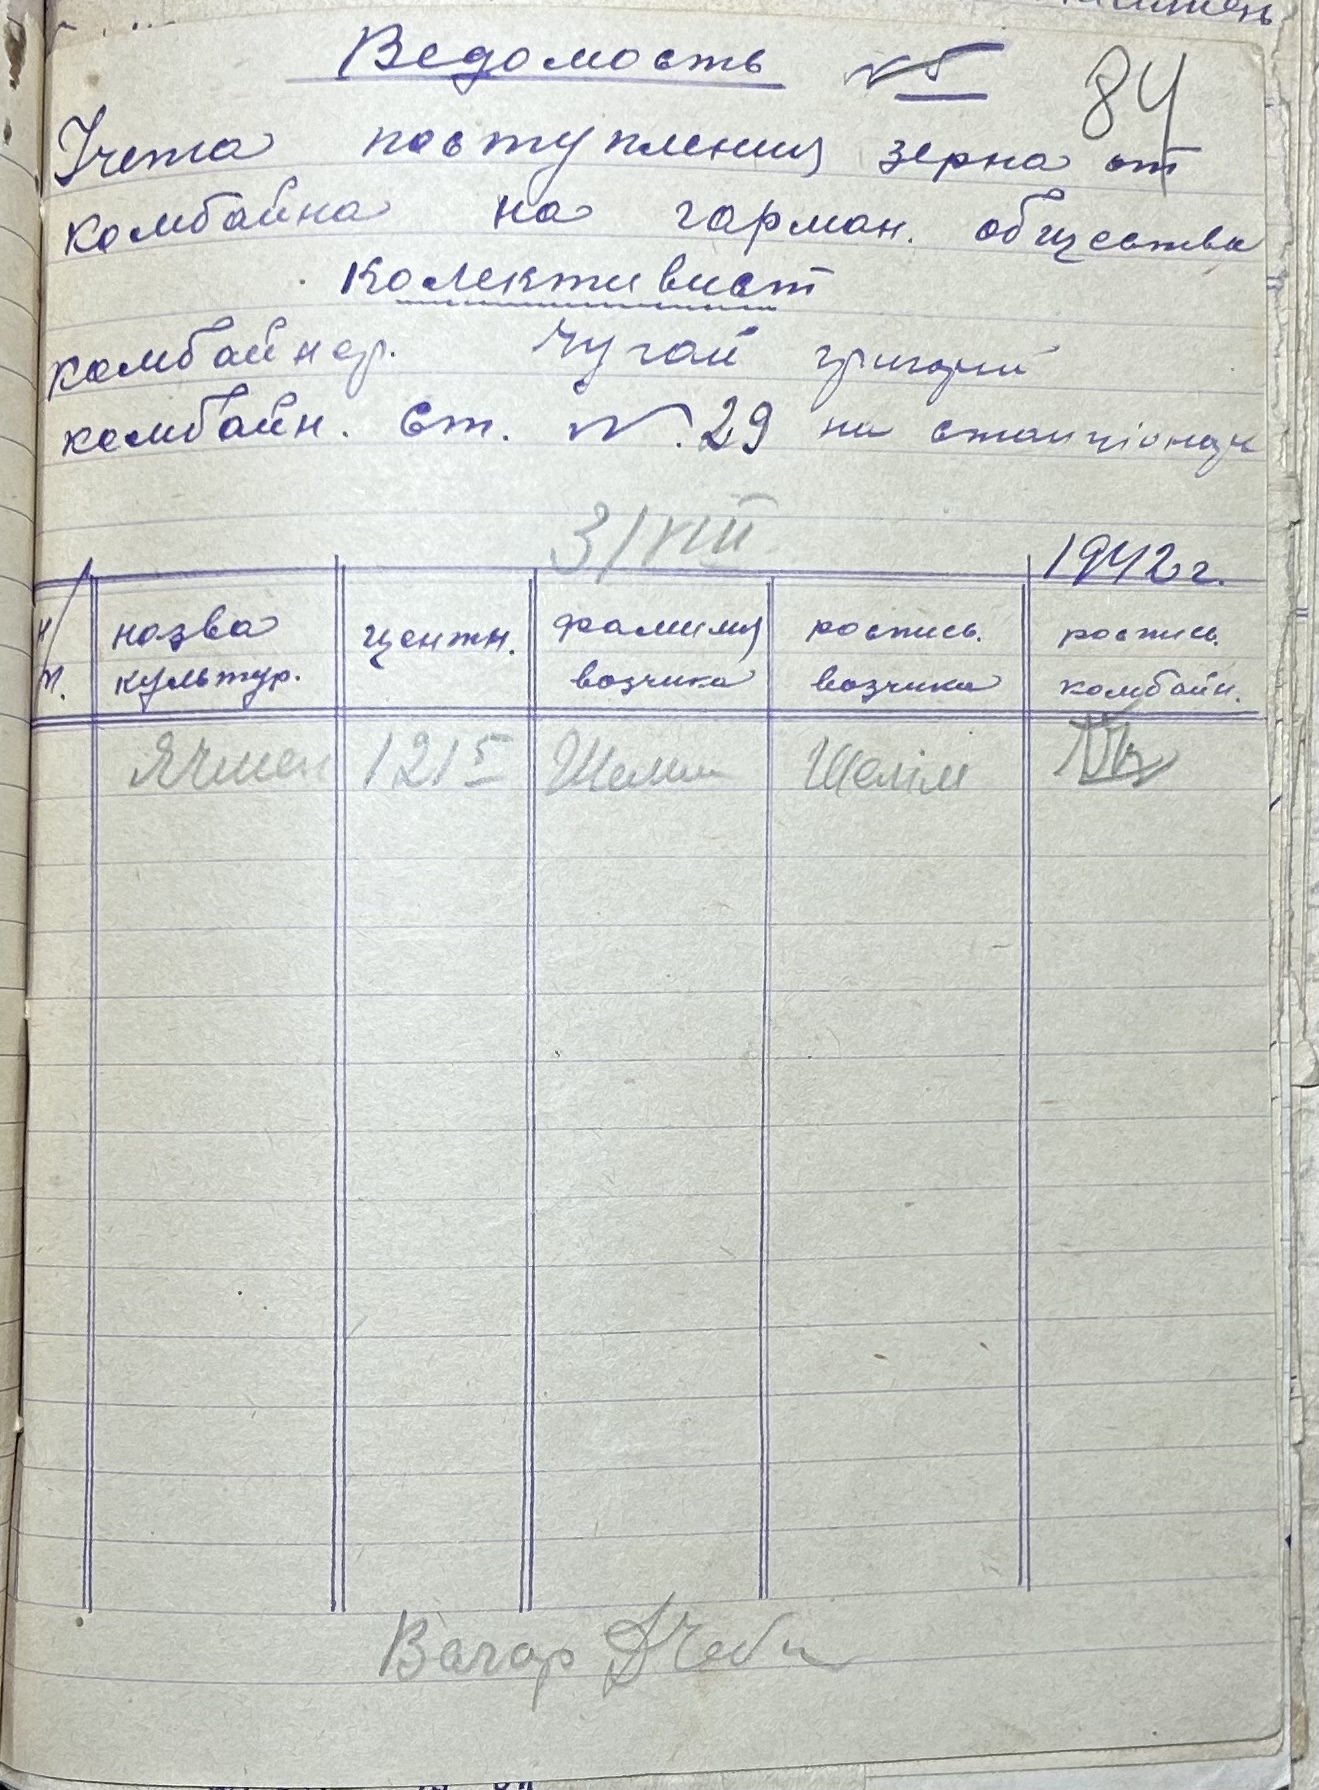 Ведомость № 5
84
Учета поступления зерна от
комбайна на гарман. общества
Колективист
комбайнер. Чугай григорий
комбайн. Ст. №. 29 на стаціонар
3/VIII
1942 г.
н/п. назва культур. центн. фамилия возчика роспись. возчика роспись. комбайн.
Ячмен 1215 Шелим Шелім
Вагар